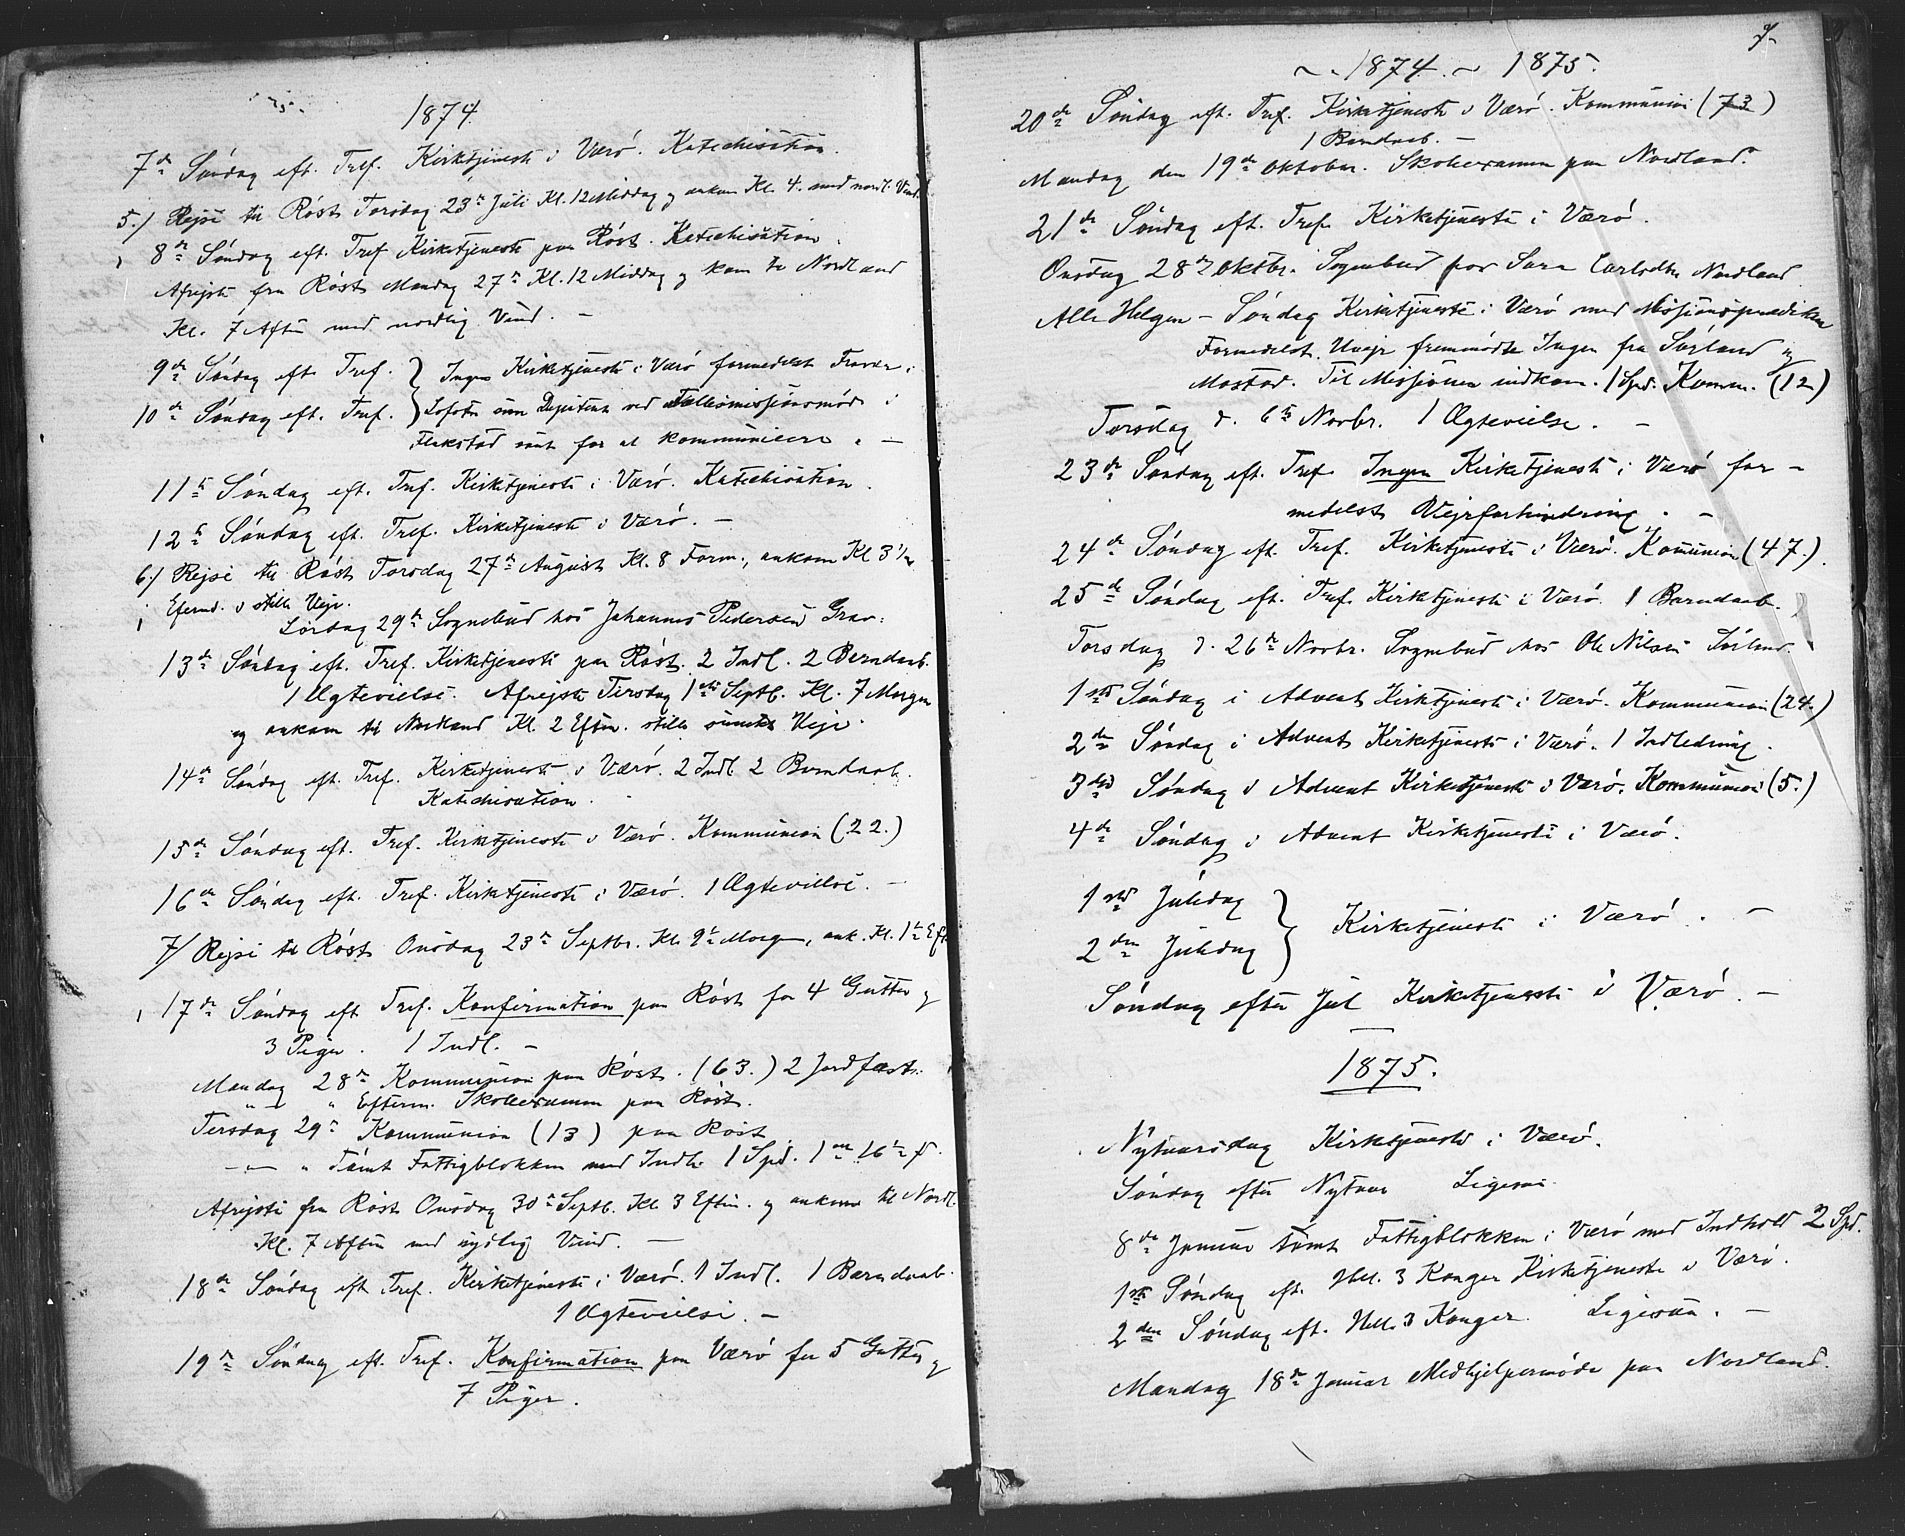 1874
7de Søndag eft. Tref. Kirketjeneste i Værø. Katechisation.
5./ Rejse til Røst Torsdag 23de Juli Kl. 12 Middag og ankom Kl. 4. med nordl. Vind.
8de Søndag eft. Tref Kirketjeneste paa Røst. Katechisation.
Afrejste fra Røst Mandag 27de Kl. 12 Middag og kom til Nordland
Kl. 7 Aften med nordlig Vind. –
9de Søndag eft. Tref. } Ingen Kirketjeneste i Værø formedelst Fravær i
10de Søndag eft. Tref. } Lofoten som Deputeret ved Fællesmissionsmøde i
Flakstad samt for at kommunicere. –
11te Søndag eft. Tref. Kirketjeneste i Værø. Katechisation.
12te Søndag eft. Tref. Kirketjeneste i Værø. –
6./ Rejse til Røst Torsdag 27de August Kl. 8 Form., ankom Kl 3 1/2
Efterm. i stille Vejr.
Lørdag 29de Sognebud hos Johannes Pedersen
13de Søndag eft. Tref. Kirketjeneste paa Røst. 2 Indl. 2 Barndaab.
1 Ægtevielse. Afrejste Tirsdag 1ste Septb. Kl. 7 Morgen
og ankom til Nordland Kl. 2 Efterm. stille smukt Vejr.
14de Søndag eft. Tref. Kirketjeneste i Værø. 2 Indl. 2 Barndaab.
Katechisation.
15de Søndag eft. Tref. Kirketjeneste i Værø. Kommunion (22.)
16de Søndag eft. Tref. Kirketjeneste i Værø. 1 Ægtevielse. –
7/ Rejse til Røst Onsdag 23de Septbr. Kl. 9 1/2 Morgen, ank. Kl. 1 1/2 Eft.
17de Søndag eft Tref. Konfirmation paa Røst for 4 Gutter og
3 Piger. 1 Indl. –
Mandag 28de Kommunion paa Røst. (63.) 2 Jordfæst.
" – " Efterm. Skoleexamen paa Røst.
Tirsdag 29de Kommunion (13) paa Røst
– " – " Tømt Fattigblokken med Indh. 1 Spd. 1 16
Afrejste fra Røst Onsdag 30te Septb. Kl. 3 Efterm. og ankom til Nordl.
Kl. 7 Aften med sydlig Vind. –
18de Søndag eft Tref. Kirketjeneste i Værø. 1 Indl. 1 Barndaab.
1 Ægtevielse. –
19de Søndag eft. Tref. Konfirmation paa Værø for 5 Gutter og
7 Piger.
7
1874. – 1875.
20de Søndag eft. Tref. Kirketjeneste i Værø. Kommunion (73)
1 Barndaab. –
Mandag den 19de Oktober. Skoleexamen paa Nordland.
21de Søndag eft. Tref. Kirketjeneste i Værø.
Onsdag 28de Oktbr. Sognebud hos Sara Carlsdtr. Nordland
Alle Helgen – Søndag Kirketjeneste i Værø med Missionsprædiken
Formedelst Uvejr fremmødte Ingen fra Sørland og
Mostad. Til Missionen indkom. 1 Spd. Komm. (12)
Torsdag d. 6te Novbr. 1 Ægtevielse. –
23de Søndag eft. Tref. Ingen Kirketjeneste i Værø for-
medelst Vejrforhindring. –
24de Søndag eft. Tref. Kirketjeneste i Værø. Kommunion (47.).
25de Søndag eft. Tref. Kirketjeneste i Værø. 1 Barndaab.
Torsdag d. 26de Novbr. Sognebud hos Ole Nilsen Sørland.
1ste Søndag i Advent Kirketjeneste i Værø. Kommunion (24.)
2den Søndag i Advent Kirketjeneste i Værø. 1 Indledning.
3die Søndag i Advent Kirketjeneste i Værø. Kommunion (5.)
4de Søndag i Advent Kirketjeneste i Værø.
1ste Juledag
2den Juledag } Kirketjeneste i Værø. –
Søndag efter Jul Kirketjeneste i Værø. –
1875.
Nytaarsdag Kirketjeneste i Værø.
Søndag efter Nytaar Ligesaa.
8de Januar tømt Fattigblokken i Værø med Indhold 2 Spd.
1ste Søndag eft. Hell. 3 Konger Kirketjeneste i Værø.
2den Søndag eft. Hell. 3 Konger. Ligesaa. –
Mandag 18de Januar Medhjelpermøde paa Nordland.